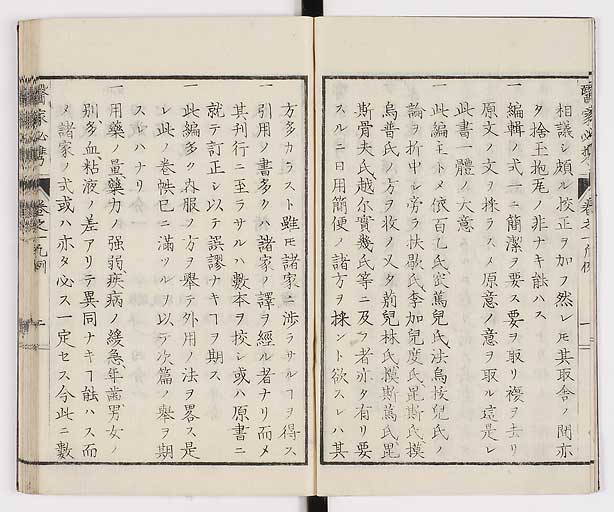 相議シ頗ル挍正ヲ加フ然レ𪜈其取舎ノ間亦
タ捨玉抱尾ノ非ナキ能ハス
一編輯ノ式一ニ簡潔ヲ要ス要ヲ取リ複ヲ去リ
原文ノ文ヲ採ラスメ原意ノ意ヲ取ル這是レ
此書一體ノ大意
一此編主トメ依百乙氏窊篤兒氏法烏挍兒氏ノ
論ヲ折中シ旁ラ扶歇氏李加兒度氏毘斯氏摸
烏普氏ノ方ヲ收ノ又タ前兒林氏摸斯篤氏毘
斯骨夫氏越尓實幾氏等ニ及フ者亦タ有リ要
スルニ日用簡便ノ諸方ヲ採ント欲スレハ其
方多カラスト雖𪜈諸家ニ渉ラサルヿヲ得ス
一引用ノ書多クハ諸家ノ譯ヲ經ル者ナリ而メ
其刊行ニ至ラサルハ數本ヲ挍シ或ハ原書ニ
就テ訂正シ以テ誤謬ナキヿヲ期ス
一此編多ク内服ノ方ヲ舉テ外用ノ法ヲ畧ス是
レ此ノ巻帙已ニ満ツルヲ以テ次篇ノ舉ヲ期
スレハナリ
一用藥ノ量藥力ノ強弱疾病ノ緩急年齒男女ノ
别多血粘液ノ差アリテ異同ナキヿ能ハス而
メ諸家ノ式或ハ亦タ必ス一定セス今此ニ數
醫家必携 巻之一凡例 二